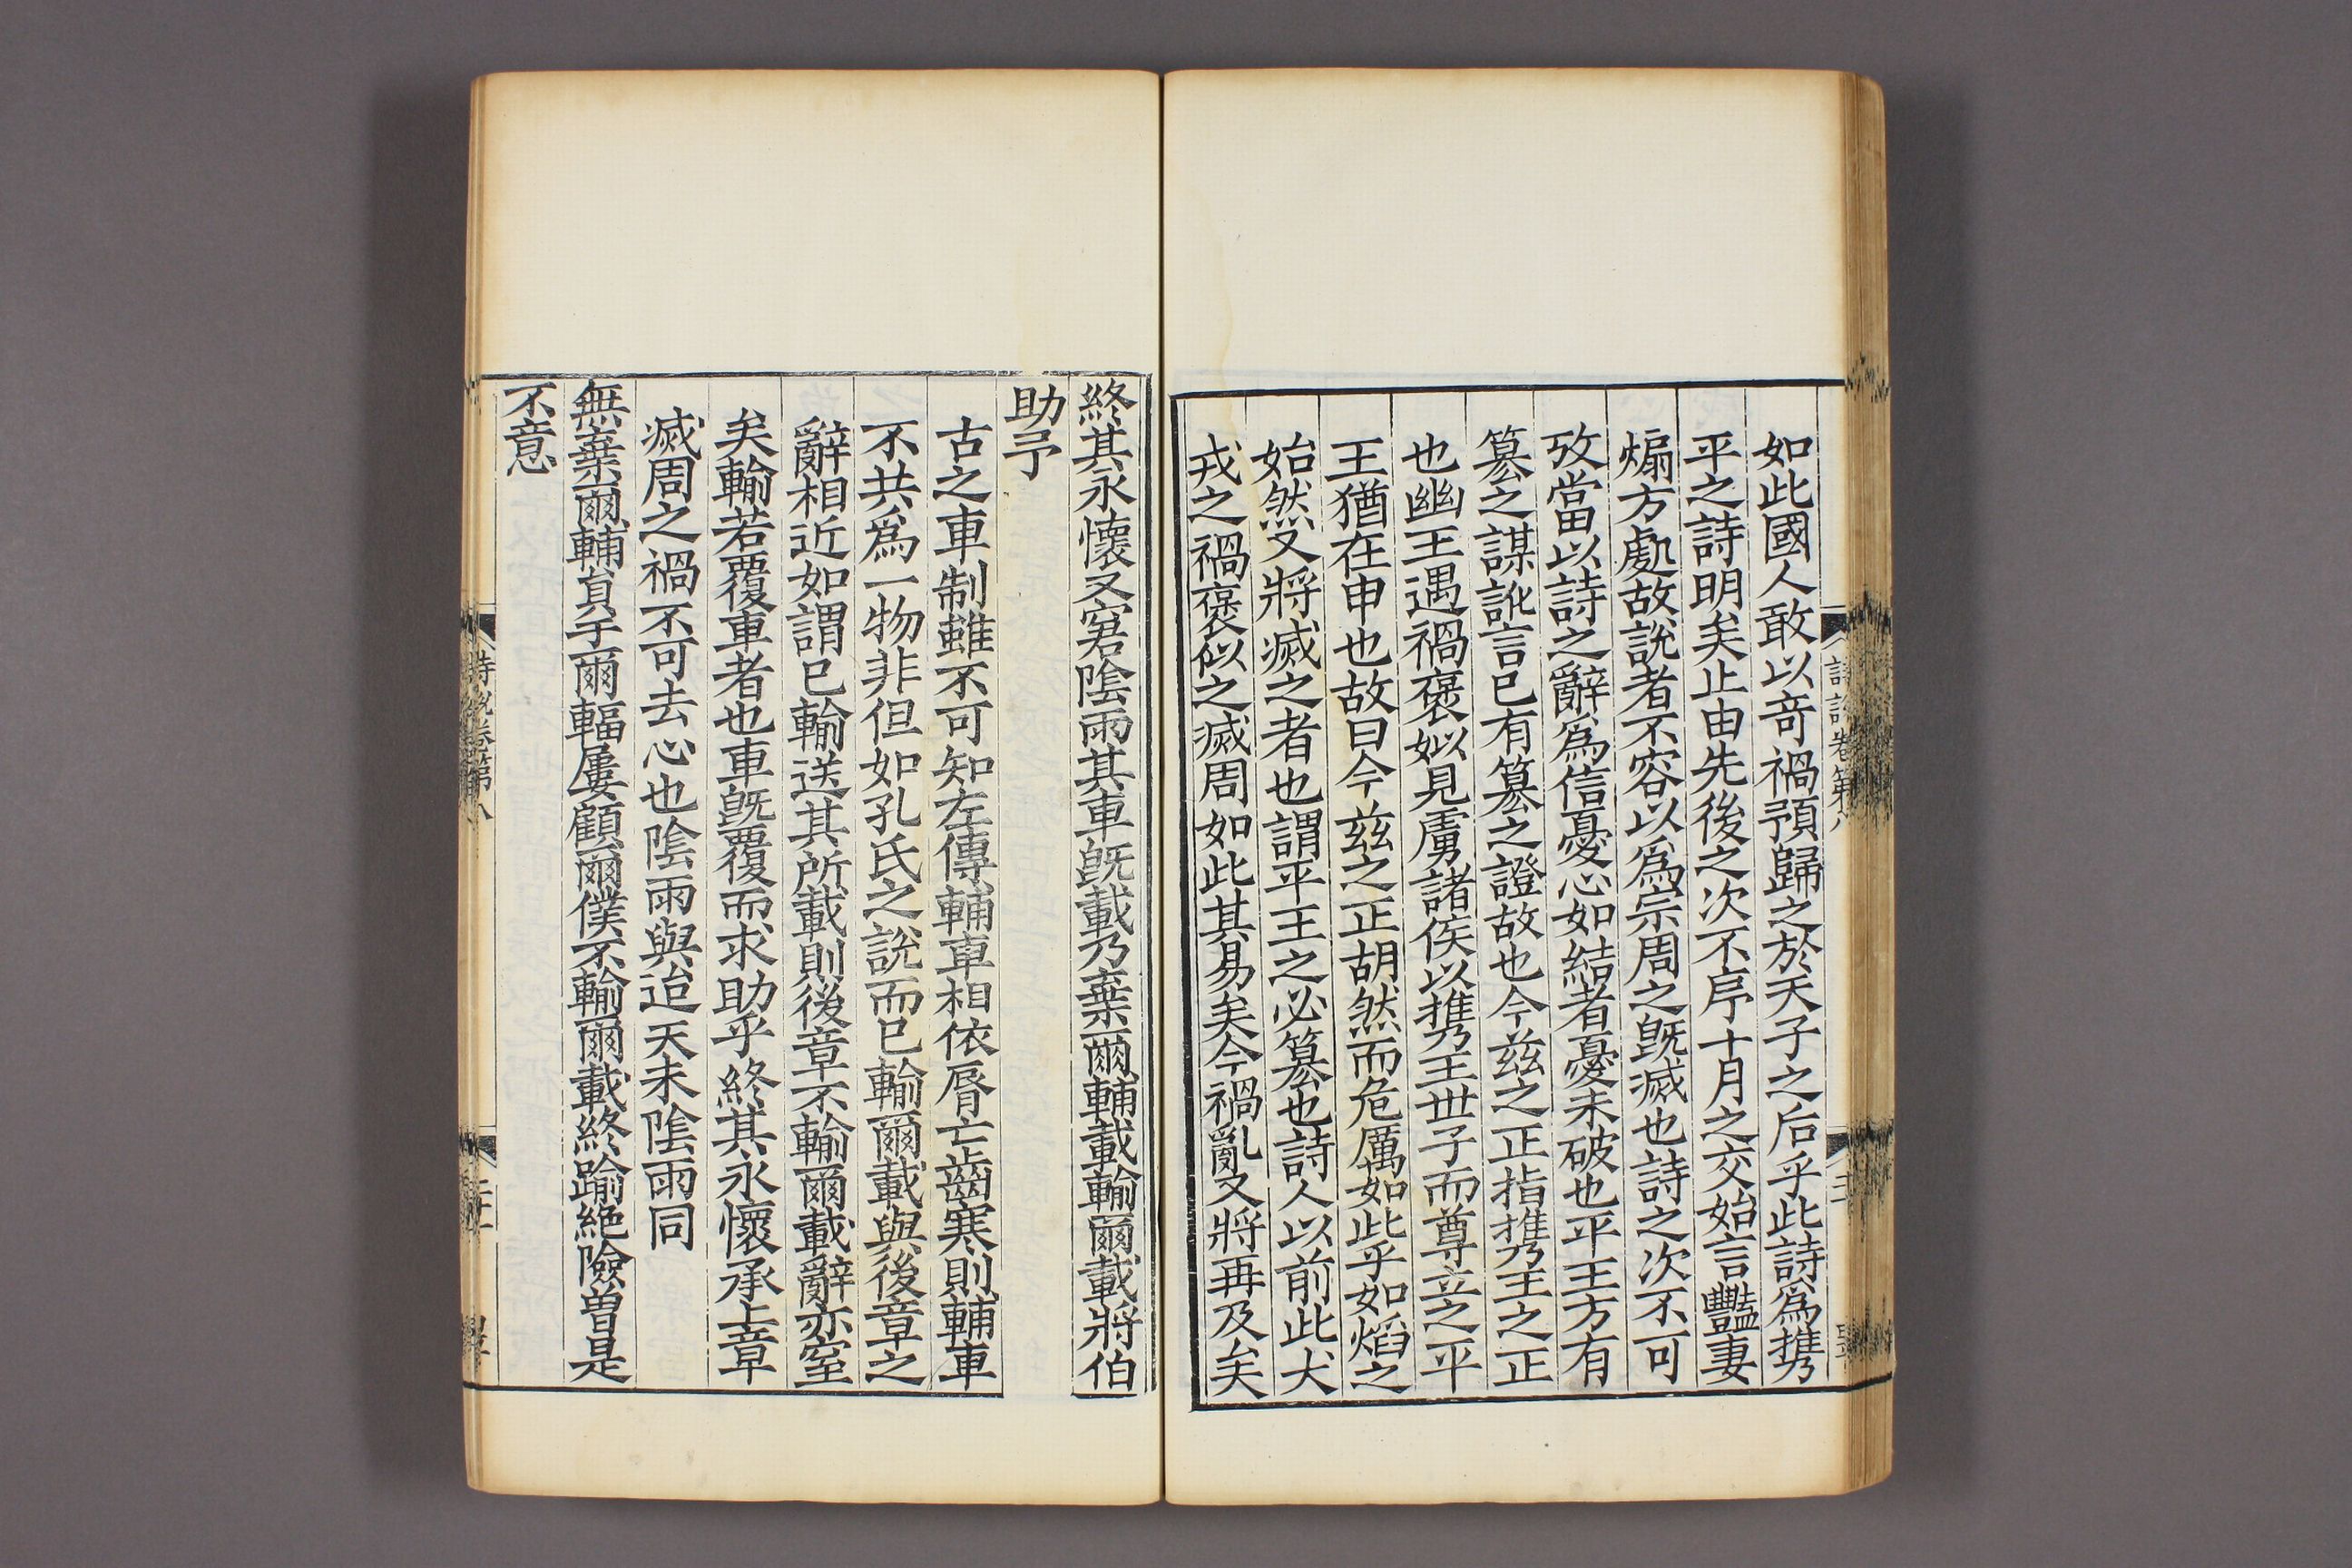 如此國人敢以竒禍預歸之於天子之后乎此詩爲携
平之詩明矣止由先後之次不序十月之交始言豔妻
煽方處故說者不容以爲宗周之旣滅也詩之次不可
攷當以詩之辭爲信憂心如結者憂未破也平王方有
簒之謀訛言已有簒之證故也今兹之正指携王之正
也幽王遇禍褒姒見虜諸侯以携王丗子而尊立之平
王猶在申也故曰今兹之正胡然而危厲如此乎如熖之
始然又將滅之者也謂平王之必簒也詩人以前此犬
戎之禍褒似之滅周如此其易矣今禍亂又將再及矣
終其永懷又窘隂雨其車旣載乃棄爾輔載輸爾載將伯
助予
古之車制雖不可知左傳輔車相依脣亡齒寒則輔車
不共爲一物非但如孔氏之說而已輸爾載與後章之
辭相近如謂已輸送其所載則後章不輸爾載辭亦窒
矣輸若覆車者也車旣覆而求助乎終其永懷承上章
滅周之禍不可去心也隂雨與迨天未隂雨同
無棄爾輔員于爾輻屢顧爾僕不輸爾載終踰絶險曽是
不意
詩說卷第八